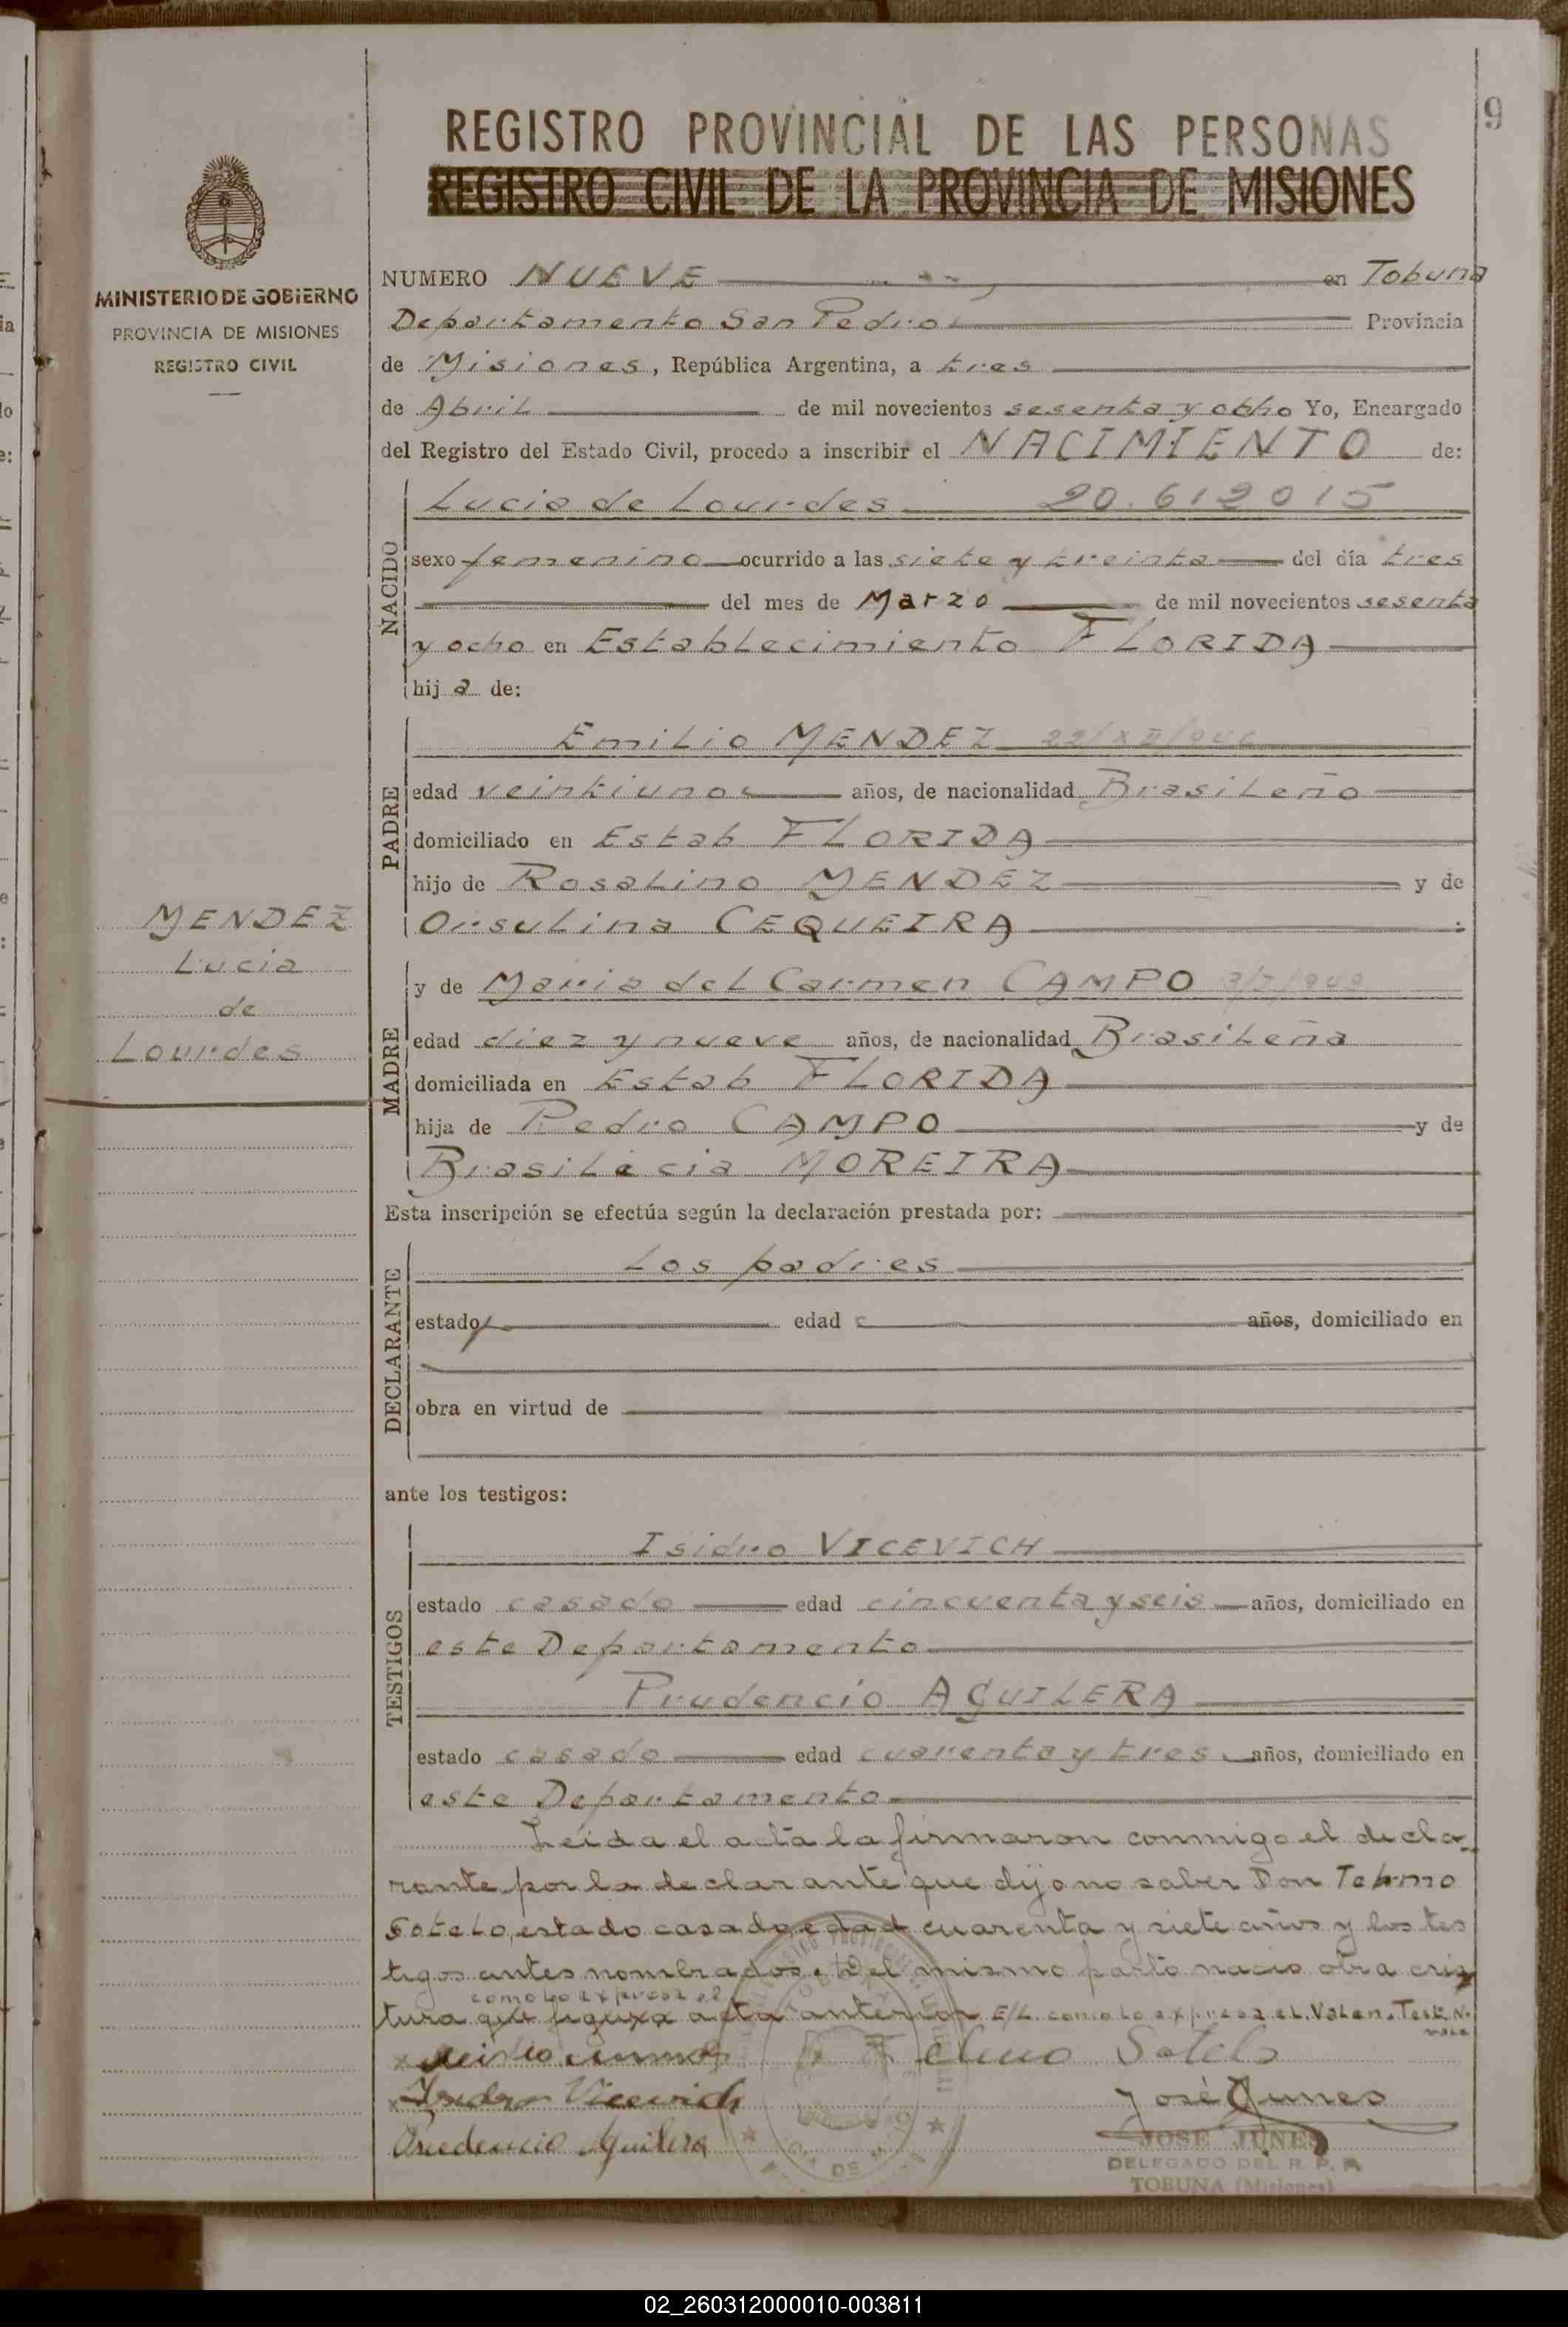 9
REGISTRO PROVINCIAL DE LAS PERSONAS
REGISTRO CIVIL DE LA PROVINCIA DE MISIONES
MINISTERIO DE GOBIERNO
PROVINCIA DE MISIONES
REGISTRO CIVIL
NUMERO NUEVE en Tobuna
Departamento San Pedro Provincia
de Misiones, República Argentina, a tres
de Abril de mil novecientos sesenta y ocho Yo, Encargado
del Registro del Estado Civil, procedo a inscribir el NACIMIENTO de:
NACIDO
Lucia de Lourdes 20.612015
sexo femenino ocurrido a las siete y treinta del día tres
del mes de Marzo de mil novecientos sesenta
y ocho en Establecimiento FLORIDA
hija de:
PADRE
Emilio MENDEZ 22/XII/946
edad veintiuno años, de nacionalidad Brasileño
domiciliado en Estab FLORIDA
hijo de Rosalino MENDEZ y de
Orsulina CEQUEIRA
MENDEZ
Lucia
de
Lourdes
MADRE
y de Maria del Carmen CAMPO
edad diez y nueve años, de nacionalidad Brasileña
domiciliada en Estab FLORIDA
hija de Pedro CAMPO y de
Brasilecia MOREIRA
Esta inscripción se efectúa según la declaración prestada por:
DECLARANTE
Los padres
estado edad años, domiciliado en
obra en virtud de
ante los testigos:
TESTIGOS
Isidro VICEVICH
estado casado edad cincuenta y seis años, domiciliado en
este Departamento
Prudencio AGUILERA
estado casado edad cuarenta y tres años, domiciliado en
este Departamento
Leida el acta la firmaron conmigo el decla-
rante por la declarante que dijo no saber Don Telmo
Sotelo, estado casado edad cuarenta y siete años y los tes
tigos antes nombrados. Del mismo parto nacio otra cria
como lo expresa el
tura que figura acta anterior E/L. como lo expresa el. Valen. Test. No
vale
Telmo Sotelo
x Isidro Vicevich José Junes
Prudencio Aguilera
JOSE JUNES
DELEGADO DEL R. P. P.
TOBUNA (Misiones)
02_260312000010-003811